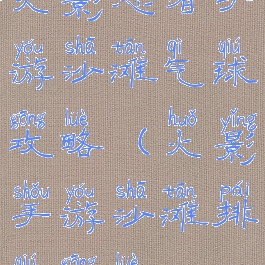 影
yóu shā tān qì qiú
游沙滩气球
gōng lüè huǒ yǐng
攻略（火影
shǒu yóu shā tān pái
手游沙滩排
qiú gōng lüè